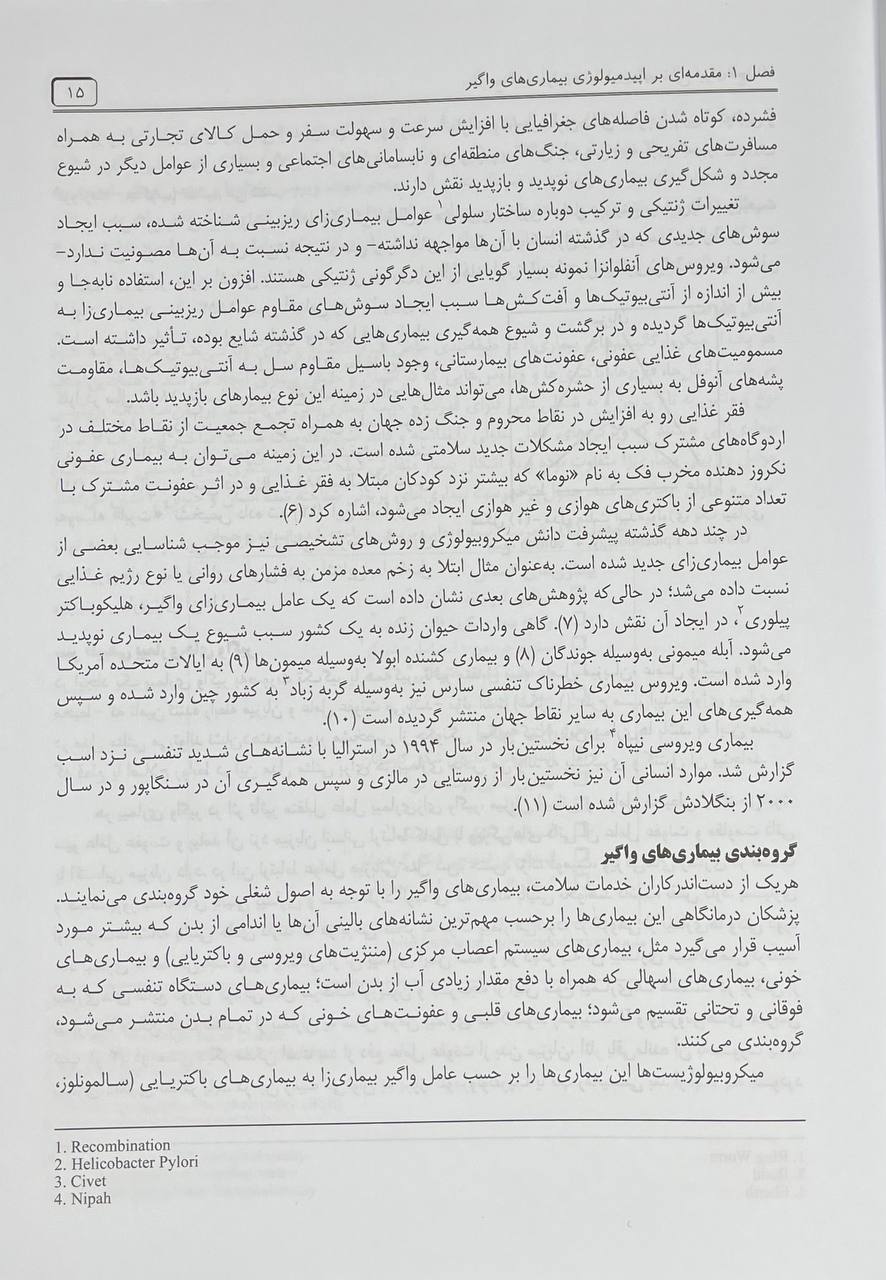 فصل ۱: مقدمه‌ای بر اپیدمیولوژی بیماری‌های واگیر
۱۵
فشرده، کوتاه شدن فاصله‌های جغرافیایی با افزایش سرعت و سهولت سفر و حمل کالای تجارتی به همراه
مسافرت‌های تفریحی و زیارتی، جنگ‌های منطقه‌ای و نابسامانی‌های اجتماعی و بسیاری از عوامل دیگر در شیوع
مجدد و شکل‌گیری بیماری‌های نوپدید و بازپدید نقش دارند.
تغییرات ژنتیکی و ترکیب دوباره ساختار سلولی۱ عوامل بیماری‌زای ریزبینی شناخته شده، سبب ایجاد
سوش‌های جدیدی که در گذشته انسان با آن‌ها مواجهه نداشته- و در نتیجه نسبت به آن‌ها مصونیت ندارد-
می‌شود. ویروس‌های آنفلوانزا نمونه بسیار گویایی از این دگرگونی ژنتیکی هستند. افزون بر این، استفاده نابه‌جا و
بیش از اندازه از آنتی‌بیوتیک‌ها و آفت‌کش‌ها سبب ایجاد سوش‌های مقاوم عوامل ریزبینی بیماری‌زا به
آنتی‌بیوتیک‌ها گردیده و در برگشت و شیوع همه‌گیری بیماری‌هایی که در گذشته شایع بوده، تأثیر داشته است.
مسمومیت‌های غذایی عفونی، عفونت‌های بیمارستانی، وجود باسیل مقاوم سل به آنتی‌بیوتیک‌ها، مقاومت
پشه‌های آنوفل به بسیاری از حشره‌کش‌ها، می‌تواند مثال‌هایی در زمینه این نوع بیمارهای بازپدید باشد.
فقر غذایی رو به افزایش در نقاط محروم و جنگ زده جهان به همراه تجمع جمعیت از نقاط مختلف در
اردوگاه‌های مشترک سبب ایجاد مشکلات جدید سلامتی شده است. در این زمینه می‌توان به بیماری عفونی
نکروز دهنده مخرب فک به نام «نوما» که بیشتر نزد کودکان مبتلا به فقر غذایی و در اثر عفونت مشترک با
تعداد متنوعی از باکتری‌های هوازی و غیر هوازی ایجاد می‌شود، اشاره کرد (۶).
در چند دهه گذشته پیشرفت دانش میکروبیولوژی و روش‌های تشخیصی نیز موجب شناسایی بعضی از
عوامل بیماری‌زای جدید شده است. به‌عنوان مثال ابتلا به زخم معده مزمن به فشارهای روانی یا نوع رژیم غذایی
نسبت داده می‌شد؛ در حالی‌که پژوهش‌های بعدی نشان داده است که یک عامل بیماری‌زای واگیر، هلیکوباکتر
پیلوری۲، در ایجاد آن نقش دارد (۷). گاهی واردات حیوان زنده به یک کشور سبب شیوع یک بیماری نوپدید
می‌شود. آبله میمونی به‌وسیله جوندگان (۸) و بیماری کشنده ابولا به‌وسیله میمون‌ها (۹) به ایالات متحده آمریکا
وارد شده است. ویروس بیماری خطرناک تنفسی سارس نیز به‌وسیله گربه زباد۳ به کشور چین وارد شده و سپس
همه‌گیری‌های این بیماری به سایر نقاط جهان منتشر گردیده است (۱۰).
بیماری ویروسی نیپاه۴ برای نخستین‌بار در سال ۱۹۹۴ در استرالیا با نشانه‌های شدید تنفسی نزد اسب
گزارش شد. موارد انسانی آن نیز نخستین‌بار از روستایی در مالزی و سپس همه‌گیری آن در سنگاپور و در سال
۲۰۰۰ از بنگلادش گزارش شده است (۱۱).
گروه‌بندی بیماری‌های واگیر
هریک از دست‌اندرکاران خدمات سلامت، بیماری‌های واگیر را با توجه به اصول شغلی خود گروه‌بندی می‌نمایند.
پزشکان درمانگاهی این بیماری‌ها را برحسب مهم‌ترین نشانه‌های بالینی آن‌ها یا اندامی از بدن که بیشتر مورد
آسیب قرار می‌گیرد مثل، بیماری‌های سیستم اعصاب مرکزی (مننژیت‌های ویروسی و باکتریایی) و بیماری‌های
خونی، بیماری‌های اسهالی که همراه با دفع مقدار زیادی آب از بدن است؛ بیماری‌های دستگاه تنفسی که به
فوقانی و تحتانی تقسیم می‌شود؛ بیماری‌های قلبی و عفونت‌های خونی که در تمام بدن منتشر می‌شود،
گروه‌بندی می‌کنند.
میکروبیولوژیست‌ها این بیماری‌ها را بر حسب عامل واگیر بیماری‌زا به بیماری‌های باکتریایی (سالمونلوز،
1. Recombination
2. Helicobacter Pylori
3. Civet
4. Nipah